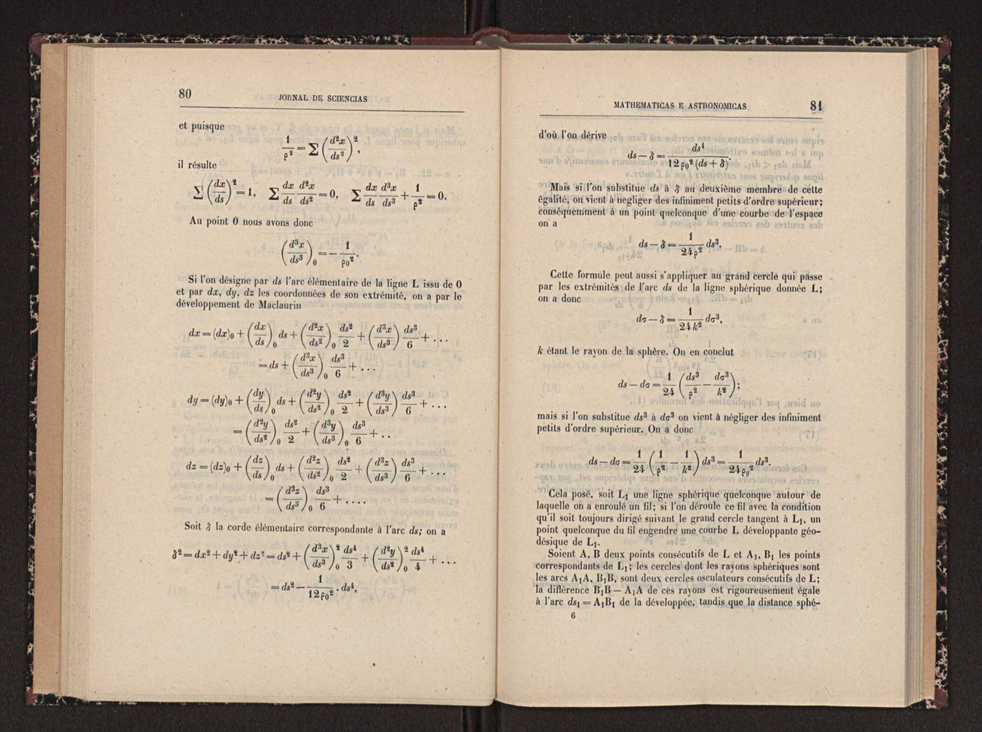 80
JORNAL DE SCIENCIAS
et puisque
1/ρ² = Σ (d²x/ds²)²,
il résulte
Σ (dx/ds)² = 1, Σ dx/ds d²x/ds² = 0, Σ dx/ds d³x/ds³ + 1/ρ² = 0.
Au point 0 nous avons donc
(d³x/ds³)₀ = − 1/ρ₀².
Si l'on désigne par ds l'arc élémentaire de la ligne L issu de 0
et par dx, dy, dz les coordonnées de son extrémité, on a par le
développement de Maclaurin
dx = (dx)₀ + (dx/ds)₀ ds + (d²x/ds²)₀ ds²/2 + (d³x/ds³)₀ ds³/6 + ...
= ds + (d³x/ds³)₀ ds³/6 + ...
dy = (dy)₀ + (dy/ds)₀ ds + (d²y/ds²)₀ ds²/2 + (d³y/ds³)₀ ds³/6 + ...
= (d²y/ds²)₀ ds²/2 + (d³y/ds³)₀ ds³/6 + ..
dz = (dz)₀ + (dz/ds)₀ ds + (d²z/ds²)₀ ds²/2 + (d³z/ds³)₀ ds³/6 + ...
= (d³z/ds³)₀ ds³/6 + ....
Soit δ la corde élémentaire correspondante à l'arc ds; on a
δ² = dx² + dy² + dz² = ds² + (d³x/ds³)₀² ds⁴/3 + (d²y/ds²)₀² ds⁴/4 + ...
= ds² − 1/12ρ₀² . ds⁴,
MATHEMATICAS E ASTRONOMICAS
81
d'où l'on dérive
ds − δ = ds⁴/12ρ₀² (ds + δ).
Mais si l'on substitue ds à δ au deuxième membre de cette
égalité, on vient à negliger des infiniment petits d'ordre supérieur;
conséquemment à un point quelconque d'une courbe de l'espace
on a
ds − δ = 1/24ρ² ds³.
Cette formule peut aussi s'appliquer au grand cercle qui passe
par les extrémités de l'arc ds de la ligne sphérique donnée L;
on a donc
dσ − δ = 1/24k² dσ³,
k étant le rayon de la sphère. On en conclut
ds − dσ = 1/24 (ds³/ρ² − dσ³/k²);
mais si l'on substitue ds³ à dσ³ on vient à négliger des infiniment
petits d'ordre supérieur. On a donc
ds − dσ = 1/24 (1/ρ² − 1/k²) ds³ = 1/24ρg² ds³.
Cela posé, soit L₁ une ligne sphérique quelconque autour de
laquelle on a enroulé un fil; si l'on déroule ce fil avec la condition
qu'il soit toujours dirigé suivant le grand cercle tangent à L₁, un
point quelconque du fil engendre une courbe L développante géo-
désique de L₁.
Soient A, B deux points consécutifs de L et A₁, B₁ les points
correspondants de L₁; les cercles dont les rayons sphériques sont
les arcs A₁A, B₁B, sont deux cercles osculateurs consécutifs de L;
la différence B₁B — A₁A de ces rayons est rigoureusement égale
à l'arc ds₁ = A₁B₁ de la développée, tandis que la distance sphé-
6